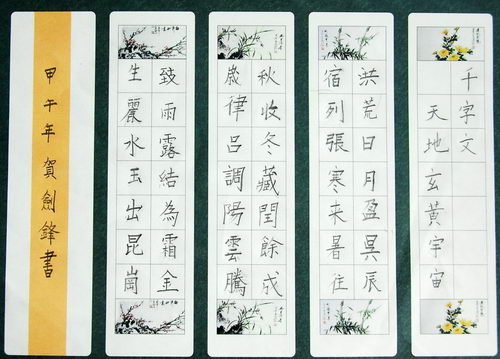 千字文
天地玄黃宇宙
洪荒日月盈昃辰
宿列張寒来暑往
秋收冬藏閏餘成
歲律呂調陽雲騰
致雨露結為霜金
生麗水玉出昆崗
甲午年賀劍鋒書